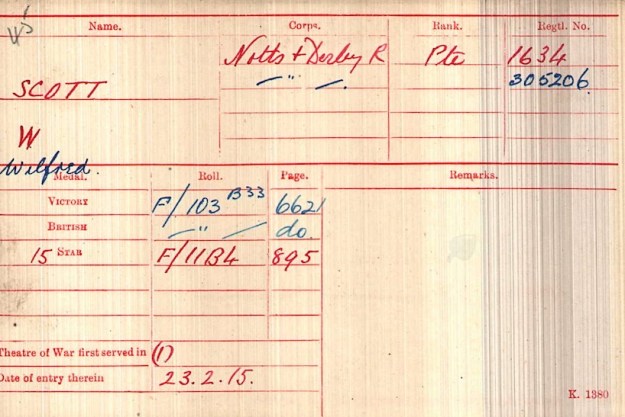 Name. Corps. Rank. Regtl. No.
Notts + Derby R Pte 1634
SCOTT — " — 305206.
W
Wilfred.
Medal. Roll. Page. Remarks.
VICTORY F/103 B33 6621
BRITISH — " — do.
15 STAR F/11B4 895
Theatre of War first served in (1)
Date of entry therein 23.2.15.
K. 1380